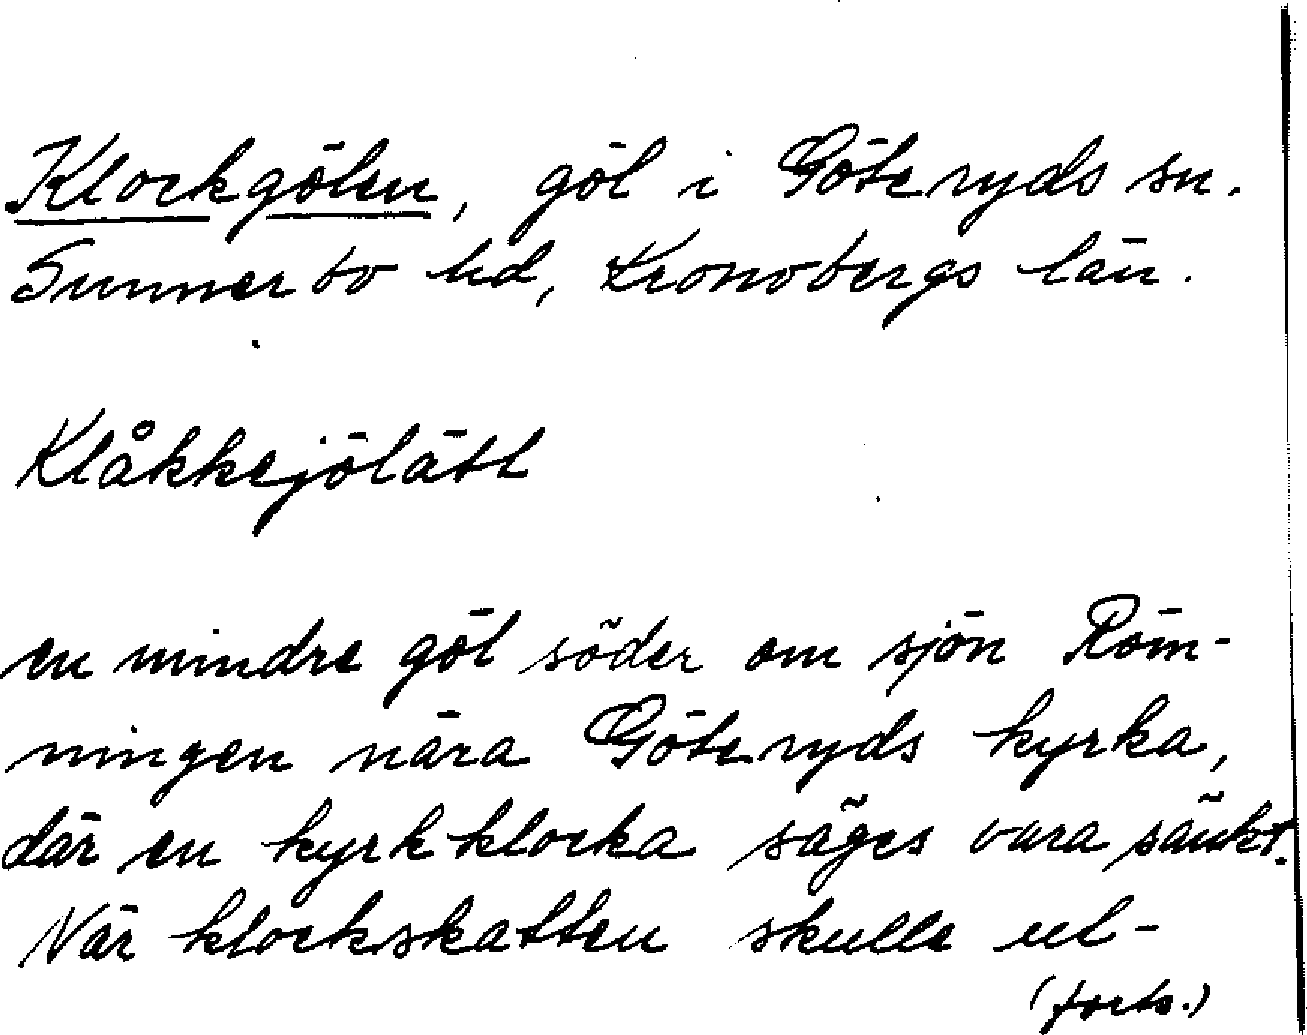 Klockgölen, göl i Göteryds sn.
Sunnerbo hd, Kronobergs län.
Klåkkejölätt
en mindre göl söder om sjön Röm-
ningen nära Göteryds kyrka,
där en kyrkklocka säges vara sänkt.
När klockskatten skulle ut-
(forts.)